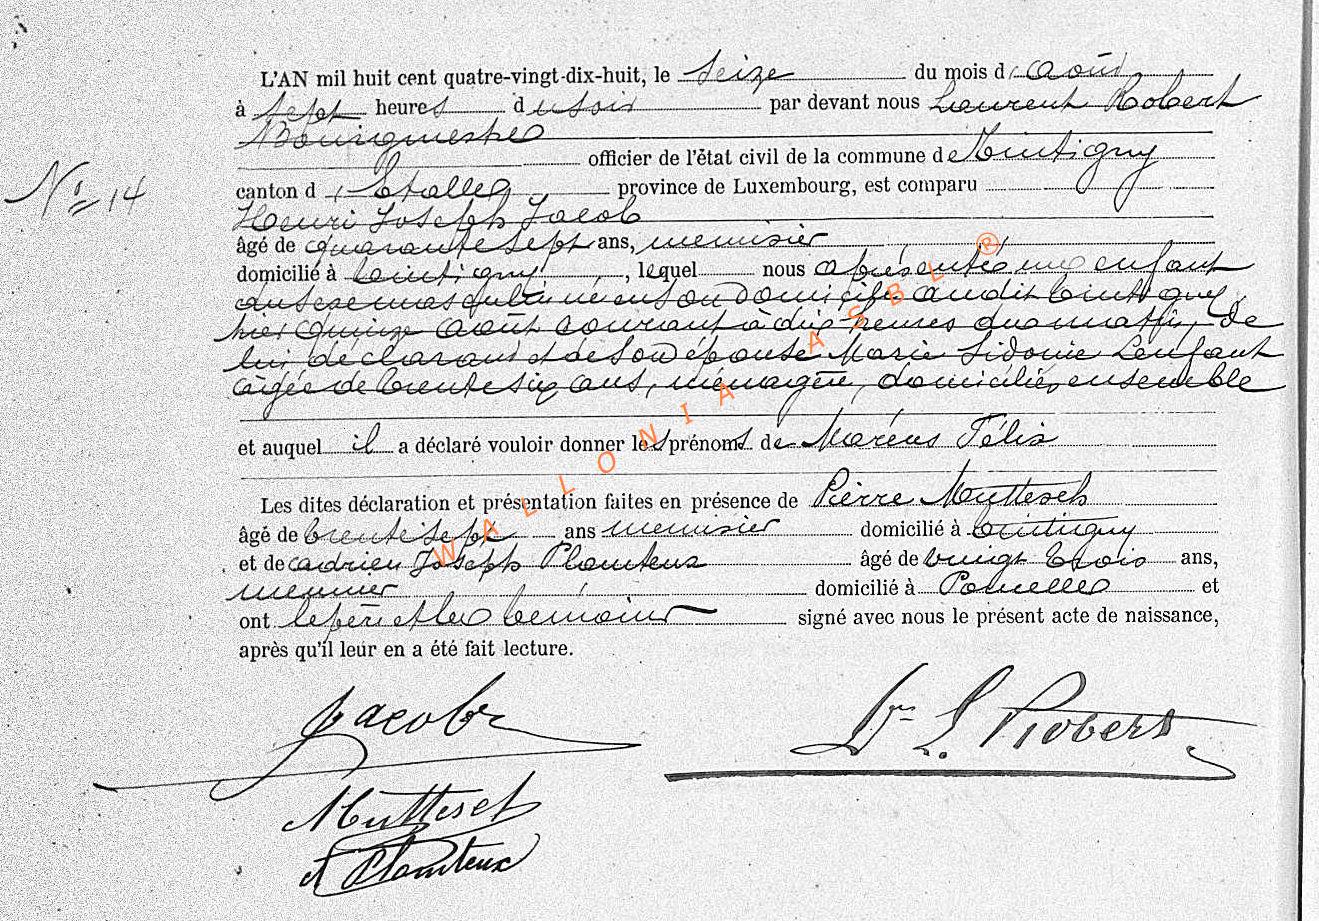 L'AN mil huit cent quatre-vingt-dix-huit, le seize du mois d'août
à sept heures du soir par devant nous Laurent Robert
Bourgmestre
officier de l'état civil de la commune de Tintigny
No 14
canton d'Etalle province de Luxembourg, est comparu
Henri Joseph Jacob
âgé de quarante sept ans, menuisier
domicilié à Tintigny, lequel nous a présenté un enfant
du sexe masculin né en son domicile audit Tintigny
hier quinze août courant à dix heures du matin, de
lui déclarant et de son épouse Marie Sidonie Lenfant
âgée de trente six ans, ménagère, domiciliés ensemble
et auquel il a déclaré vouloir donner les prénoms de Marcus Félix
Les dites déclaration et présentation faites en présence de Pierre Muttesch
âgé de trente sept ans menuisier domicilié à Tintigny
et de Adrien Joseph Plomteux âgé de vingt trois ans,
meunier domicilié à et
ont le père et les témoins signé avec nous le présent acte de naissance,
après qu'il leur en a été fait lecture.
Jacob
Dr L. Robert
Muttesch
Plomteux
WALLONIA ASBL ®